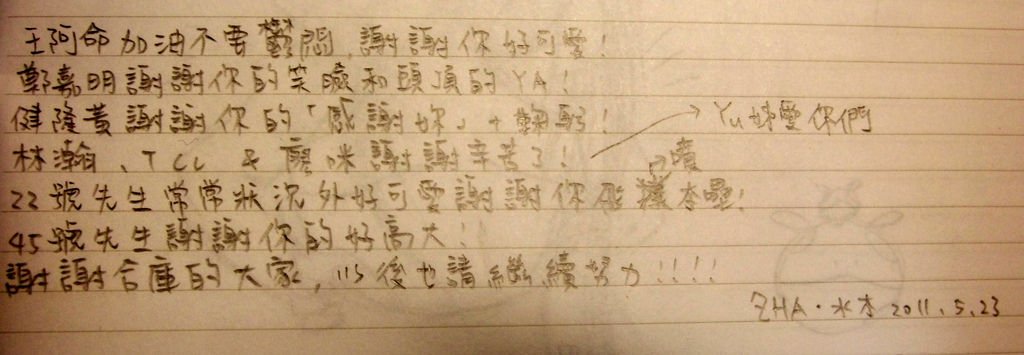 王阿命加油不要鬱悶，謝謝你好可愛！
鄭嘉明謝謝你的笑臉和頭頂的YA！
健隆黃謝謝你的「感謝妳」+鞠躬！
林瀚、TCL & 麼咪謝謝辛苦了！ → Yu姊愛你們
22號先生常常狀況外好可愛謝謝你
45號先生謝謝你的好高大！
謝謝合庫的大家，以後也請繼續努力！！！！
ZHA・水本 2011.5.23